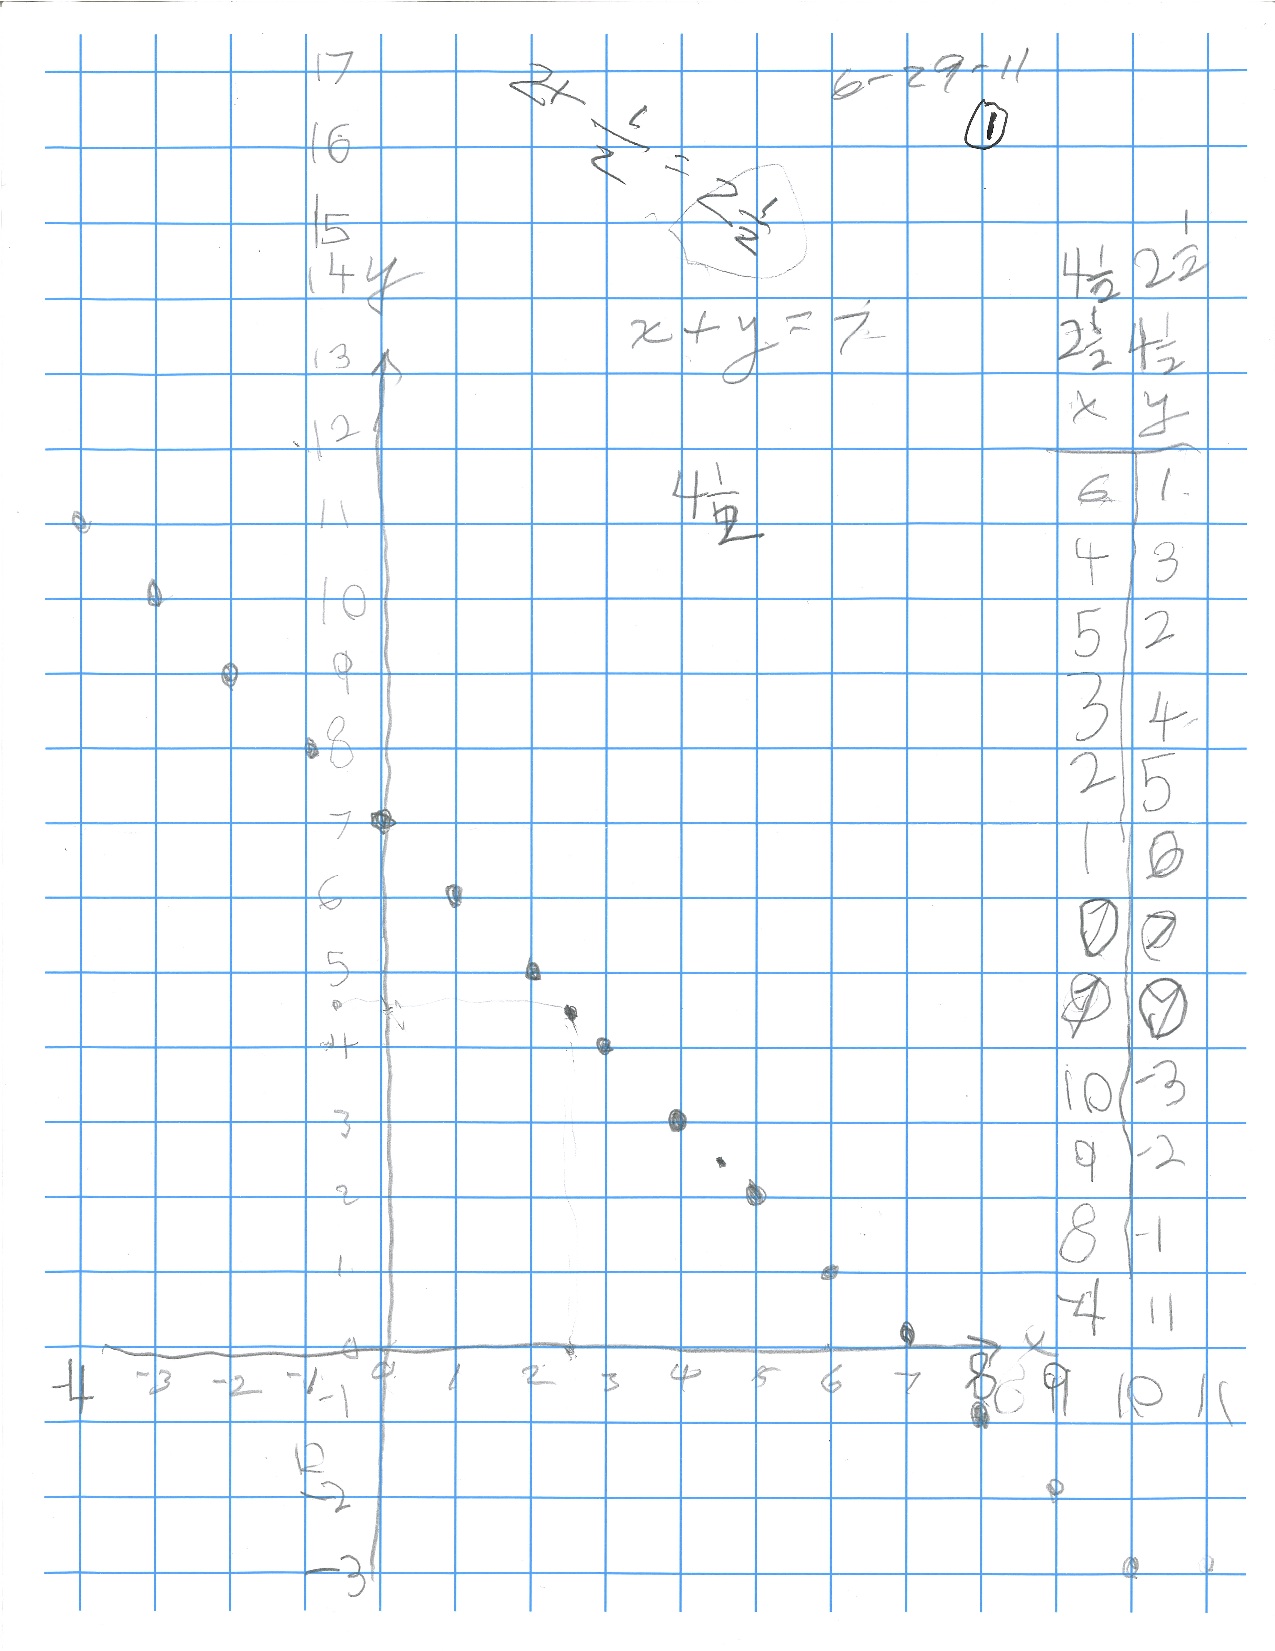 6-29-11
1
2+
1/2 = 2 1/2
x + y = 7
4 1/2
4 1/2 2 1/2
2 1/2 4 1/2
x y
6 1
4 3
5 2
3 4
2 5
1 6
0 7
7 0
10 -3
9 -2
8 -1
-4 11
17
16
15
14 y
13
12
11
10
9
8
7
6
5
4
3
2
1
0
x
-4 -3 -2 -1 0 1 2 3 4 5 6 7 8 9 10 11
-1
-2
-3